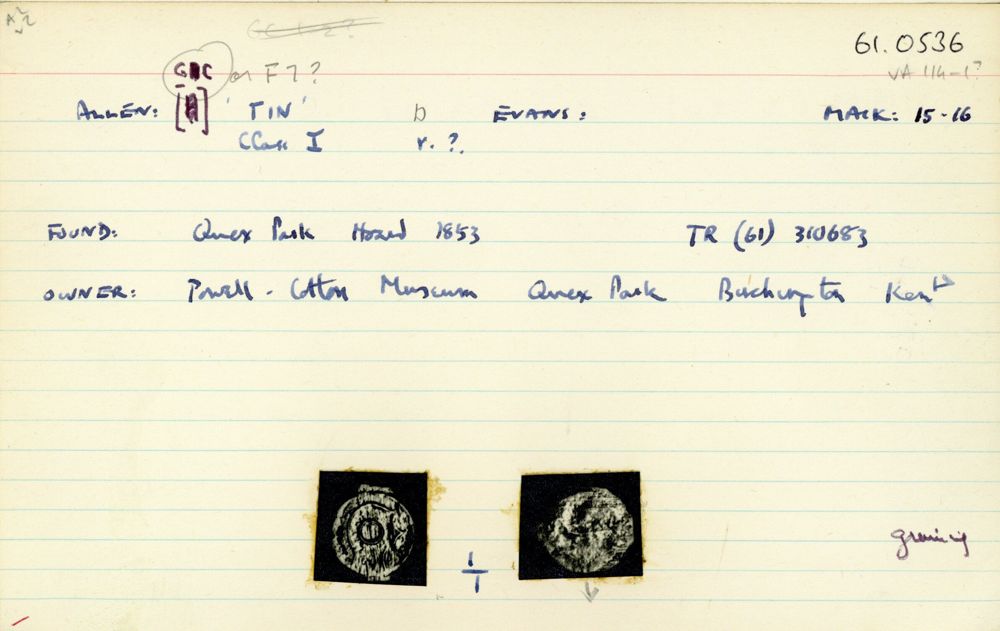 61.0536
or F 7?
VA 114-1?
ALLEN: 'TIN' D EVANS: MACK: 15-16
Class I r. ?.
FOUND: Quex Park Hoard 1853 TR (61) 310683
OWNER: Powell-Cotton Museum Quex Park Birchington Kent
graining
1/1